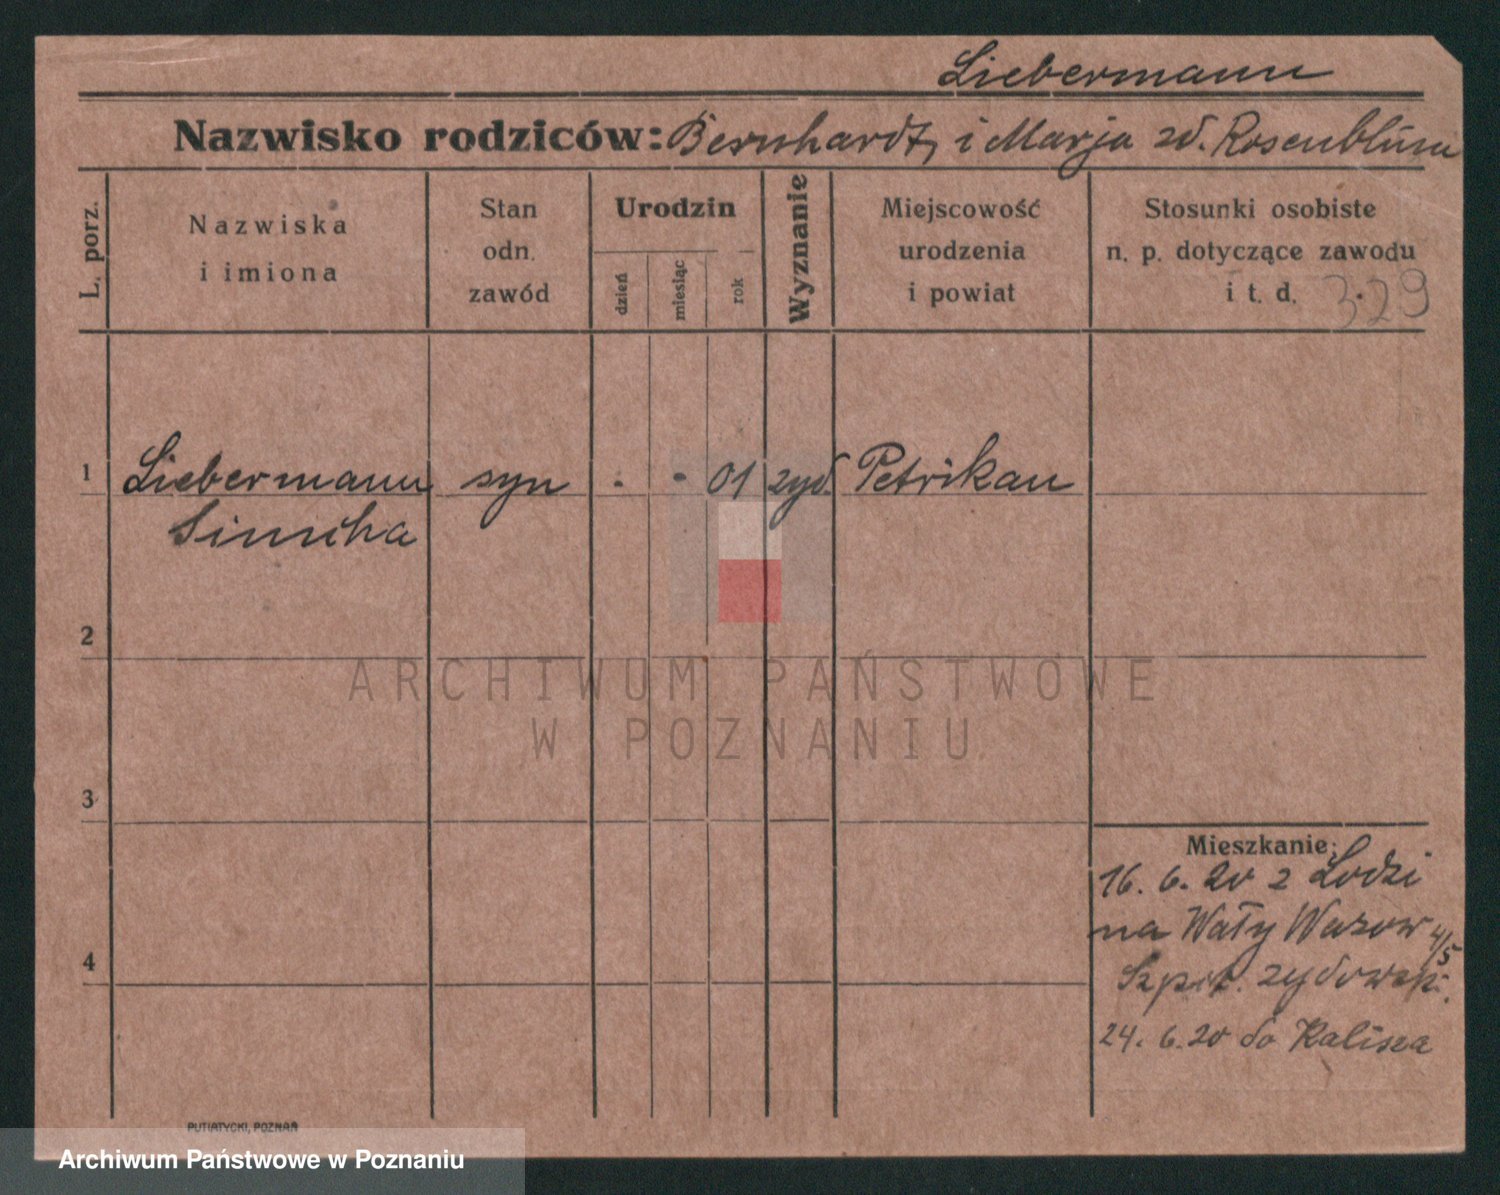 Liebermann
Nazwisko rodziców: Bernhardt, i Marja zd. Rosenblum
L. porz.
Nazwiska
i imiona
Stan
odn.
zawód
Urodzin
dzień
miesiąc
rok
Wyznanie
Miejscowość
urodzenia
i powiat
Stosunki osobiste
n. p. dotyczące zawodu
i t. d. 3.29
1 Liebermann syn - - 01 żyd. Petrikau
Simcha
2
ARCHIWUM PAŃSTWOWE
W POZNANIU
3
Mieszkanie:
16. 6. 20 z Łodzi
na Wały Wazow 4/5
Szpit. żydowski.
4
24. 6. 20 do Kalisza
PUTIATYCKI, POZNAŃ
Archiwum Państwowe w Poznaniu